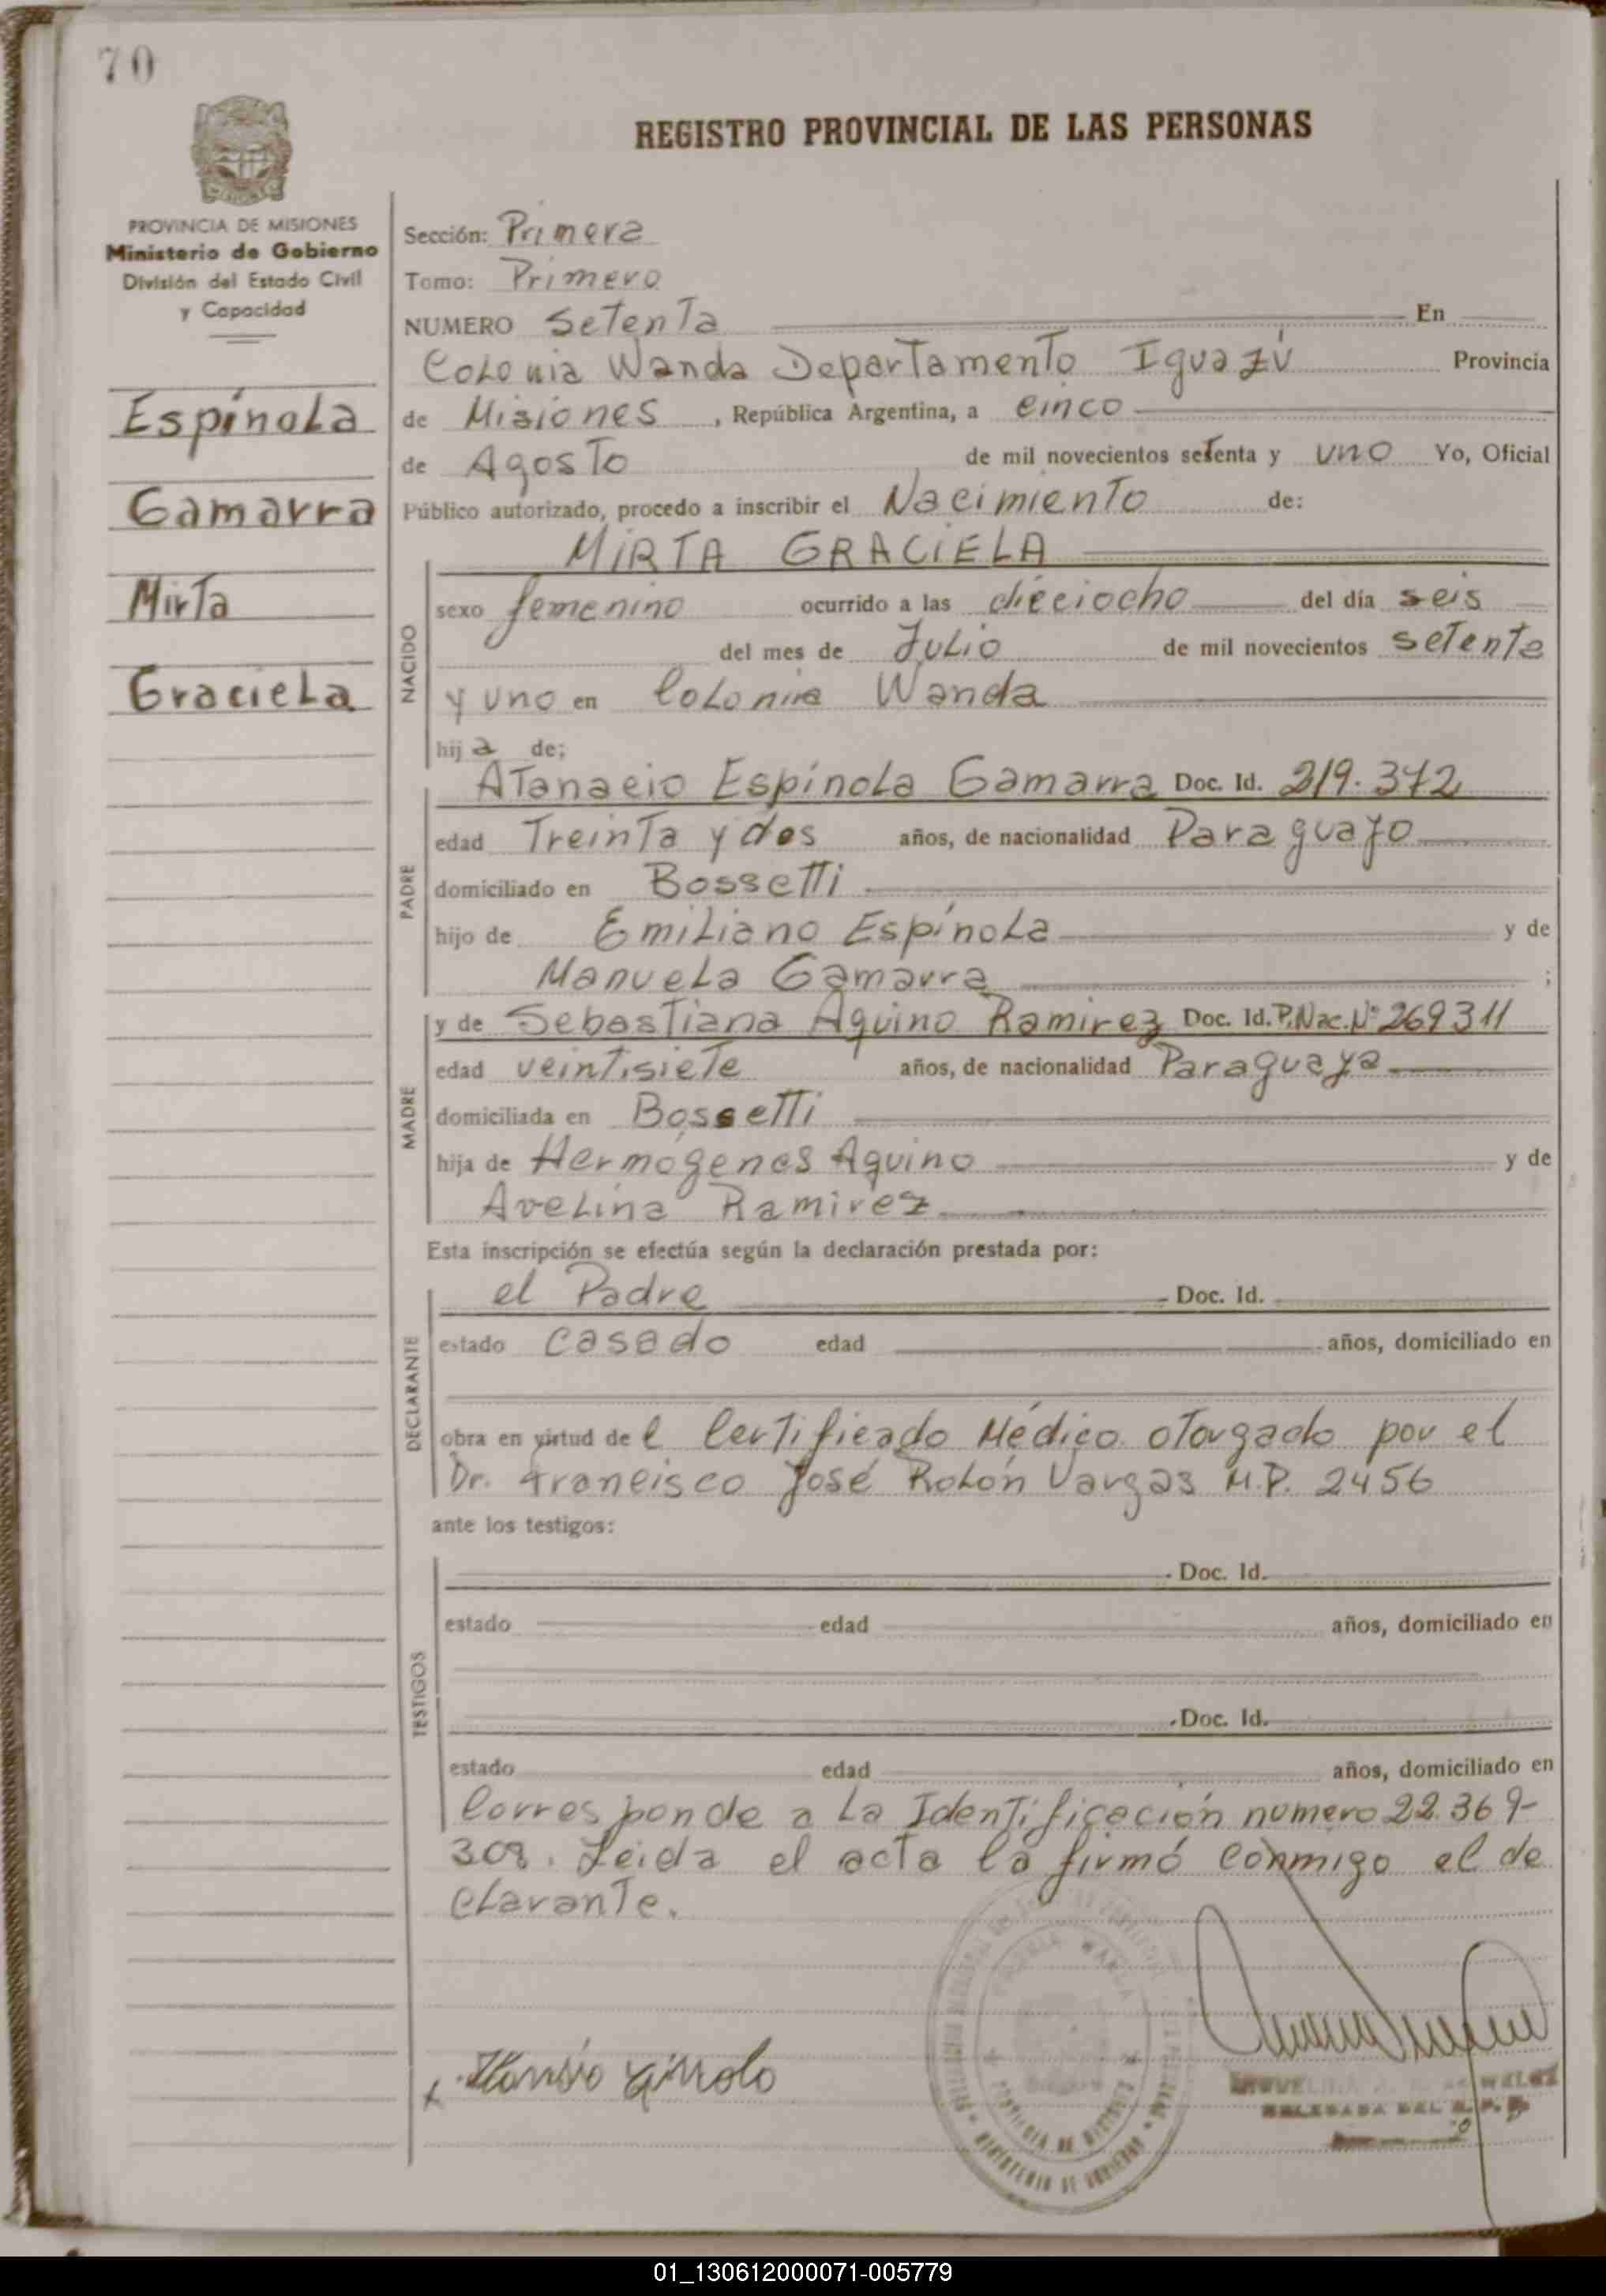 70
REGISTRO PROVINCIAL DE LAS PERSONAS
PROVINCIA DE MISIONES
Ministerio de Gobierno
División del Estado Civil
y Capacidad
Espínola
Gamarra
Mirta
Graciela
Sección: Primera
Tomo: Primero
NUMERO Setenta En
Colonia Wanda Departamento Iguazú Provincia
de Misiones, República Argentina, a cinco
de Agosto de mil novecientos setenta y uno Yo, Oficial
Público autorizado, procedo a inscribir el Nacimiento de:
MIRTA GRACIELA
NACIDO
sexo femenino ocurrido a las dieciocho del día seis
del mes de Julio de mil novecientos setenta
y uno en Colonia Wanda
hija de;
PADRE
Atanacio Espínola Gamarra Doc. Id. 319.372
edad Treinta y dos años, de nacionalidad Paraguayo
domiciliado en Bossetti
hijo de Emiliano Espínola y de
Manuela Gamarra ;
MADRE
y de Sebastiana Aquino Ramirez Doc. Id. P.Nac.Nº 269311
edad veintisiete años, de nacionalidad Paraguaya
domiciliada en Bossetti
hija de Hermógenes Aquino y de
Avelina Ramirez
Esta inscripción se efectúa según la declaración prestada por:
DECLARANTE
el Padre Doc. Id.
estado casado edad años, domiciliado en
obra en virtud del Certificado Médico otorgado por el
Dr. Francisco José Rolón Vargas M.P. 2456
ante los testigos:
TESTIGOS
Doc. Id.
estado edad años, domiciliado en
Doc. Id.
estado edad años, domiciliado en
Corresponde a la Identificación numero 22.369-
308. Leida el acta la firmó conmigo el de
clarante.
WANDA
PROVINCIA DE MISIONES
MINISTERIO DE GOBIERNO
DELEGADA DEL R. P. P.
01_130612000071-005779